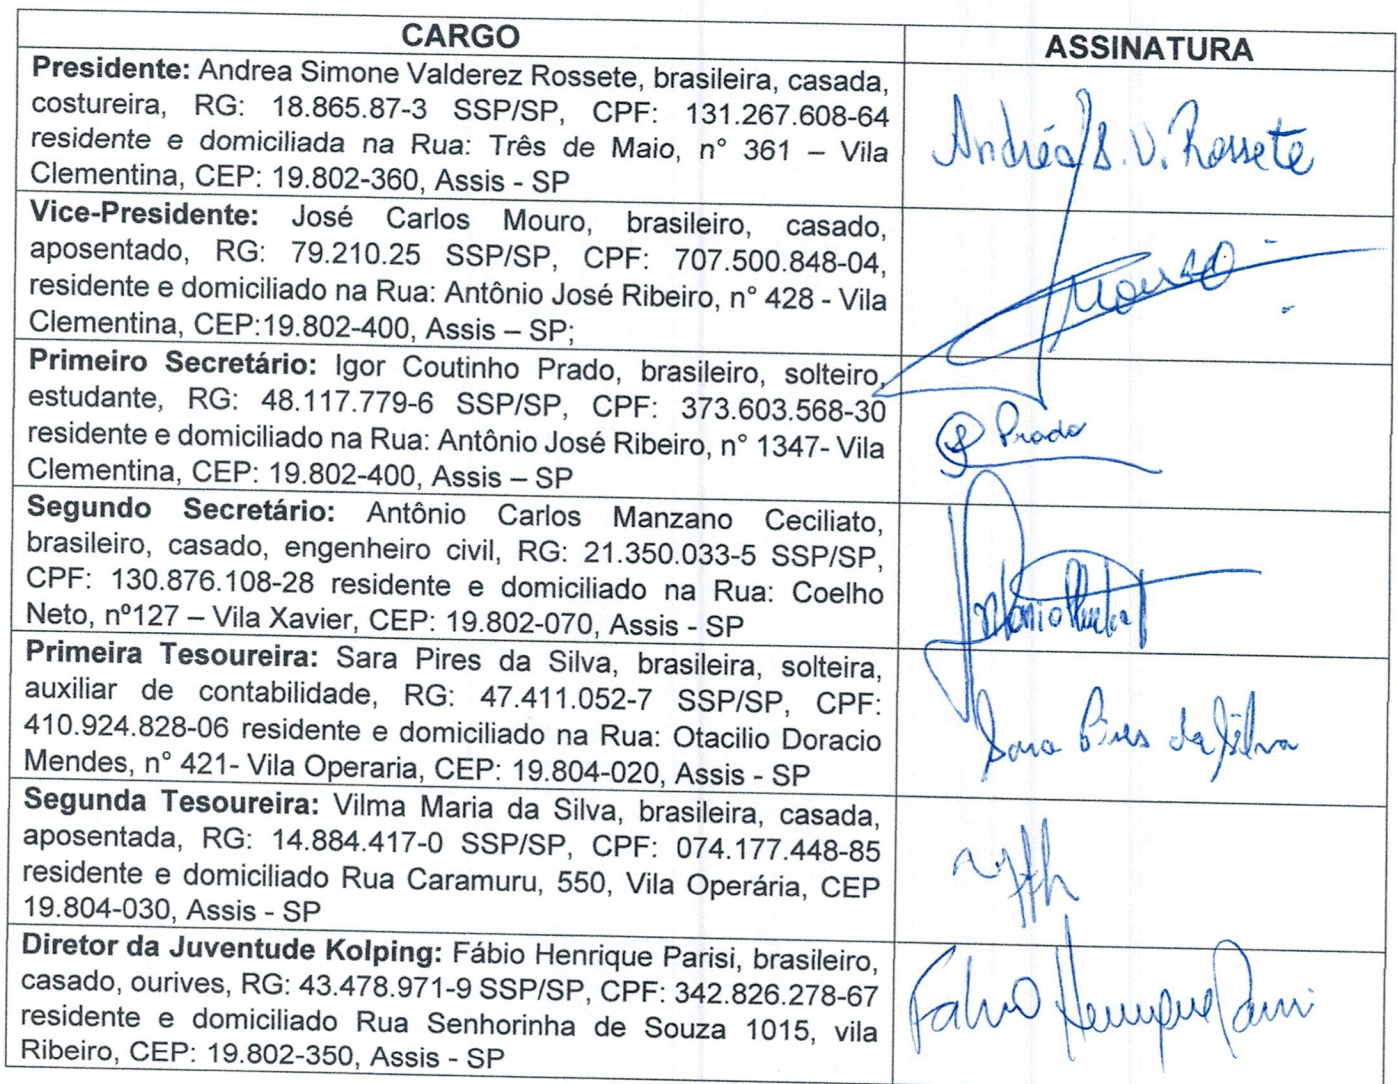 CARGO
ASSINATURA
Presidente: Andrea Simone Valderez Rossete, brasileira, casada,
costureira, RG: 18.865.87-3 SSP/SP, CPF: 131.267.608-64
residente e domiciliada na Rua: Três de Maio, n° 361 – Vila
Clementina, CEP: 19.802-360, Assis - SP
Andréa S. V. Rossete
Vice-Presidente: José Carlos Mouro, brasileiro, casado,
aposentado, RG: 79.210.25 SSP/SP, CPF: 707.500.848-04,
residente e domiciliado na Rua: Antônio José Ribeiro, n° 428 - Vila
Clementina, CEP:19.802-400, Assis – SP;
Primeiro Secretário: Igor Coutinho Prado, brasileiro, solteiro,
estudante, RG: 48.117.779-6 SSP/SP, CPF: 373.603.568-30
residente e domiciliado na Rua: Antônio José Ribeiro, n° 1347- Vila
Clementina, CEP: 19.802-400, Assis – SP
Prado
Segundo Secretário: Antônio Carlos Manzano Ceciliato,
brasileiro, casado, engenheiro civil, RG: 21.350.033-5 SSP/SP,
CPF: 130.876.108-28 residente e domiciliado na Rua: Coelho
Neto, nº127 – Vila Xavier, CEP: 19.802-070, Assis - SP
Primeira Tesoureira: Sara Pires da Silva, brasileira, solteira,
auxiliar de contabilidade, RG: 47.411.052-7 SSP/SP, CPF:
410.924.828-06 residente e domiciliado na Rua: Otacilio Doracio
Mendes, n° 421- Vila Operaria, CEP: 19.804-020, Assis - SP
Sara Pires da Silva
Segunda Tesoureira: Vilma Maria da Silva, brasileira, casada,
aposentada, RG: 14.884.417-0 SSP/SP, CPF: 074.177.448-85
residente e domiciliado Rua Caramuru, 550, Vila Operária, CEP
19.804-030, Assis - SP
Diretor da Juventude Kolping: Fábio Henrique Parisi, brasileiro,
casado, ourives, RG: 43.478.971-9 SSP/SP, CPF: 342.826.278-67
residente e domiciliado Rua Senhorinha de Souza 1015, vila
Ribeiro, CEP: 19.802-350, Assis - SP
Fabio Henrique Parisi